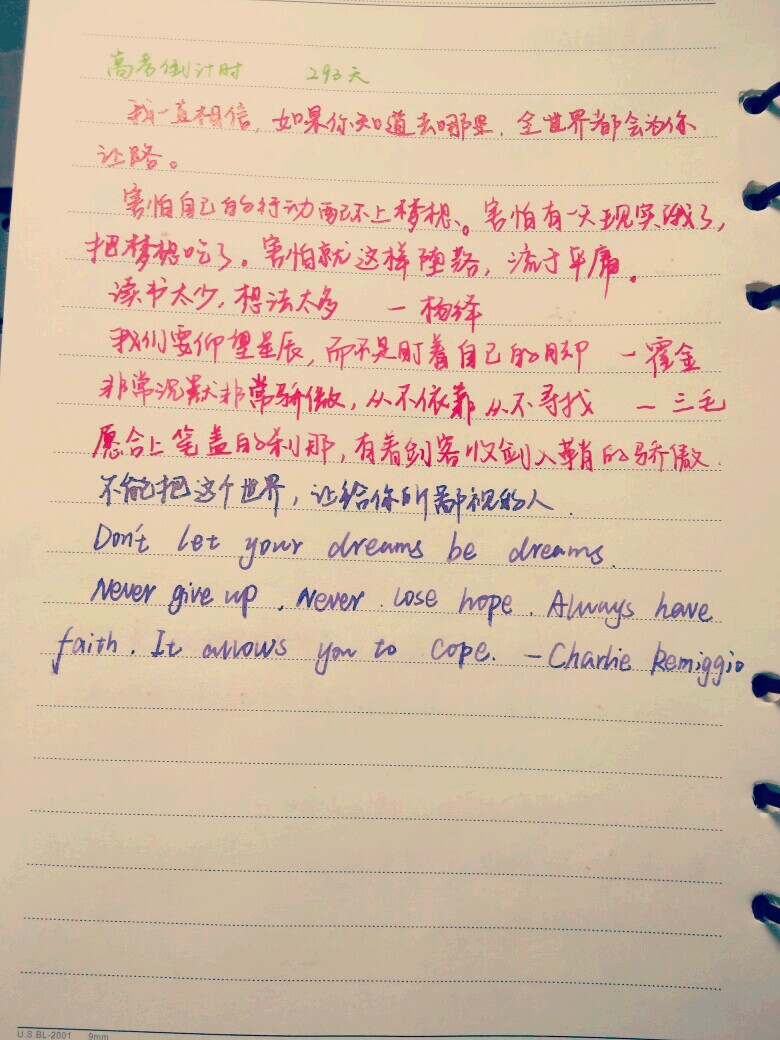 高考倒计时 293天
我一直相信，如果你知道去哪里，全世界都会为你
让路。
害怕自己的行动配不上梦想。害怕有一天现实饿了，
把梦想吃了。害怕就这样堕落，流于平庸。
读书太少，想法太多 — 杨绛
我们要仰望星辰，而不是盯着自己的脚 — 霍金
非常沉默非常骄傲，从不依靠 从不寻找 — 三毛
愿合上笔盖的刹那，有着剑客收剑入鞘的骄傲.
不能把这个世界，让给你所鄙视的人.
Don't let your dreams be dreams.
Never give up. Never lose hope. Always have
faith. It allows you to cope. — Charlie Remiggio
U.S.BL-2001 9mm